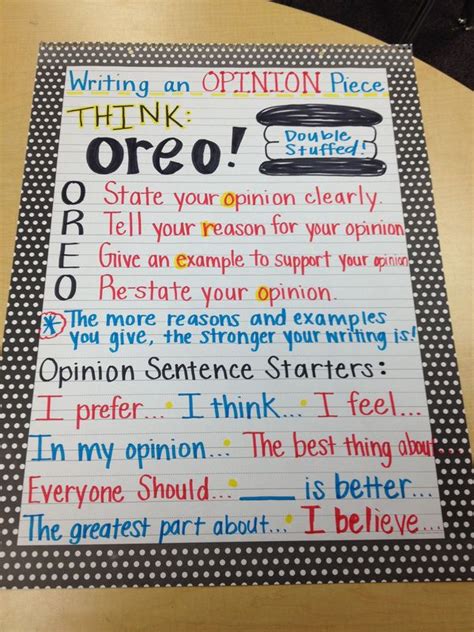 Writing an OPINION Piece
THINK:
oreo!
Double
Stuffed!
O State your opinion clearly.
R Tell your reason for your opinion
E Give an example to support your opinion
O Re-state your opinion.
* The more reasons and examples
you give, the stronger your writing is!
Opinion Sentence Starters:
I prefer... I think... I feel...
In my opinion... The best thing about...
Everyone Should... ____ is better...
The greatest part about... I believe...